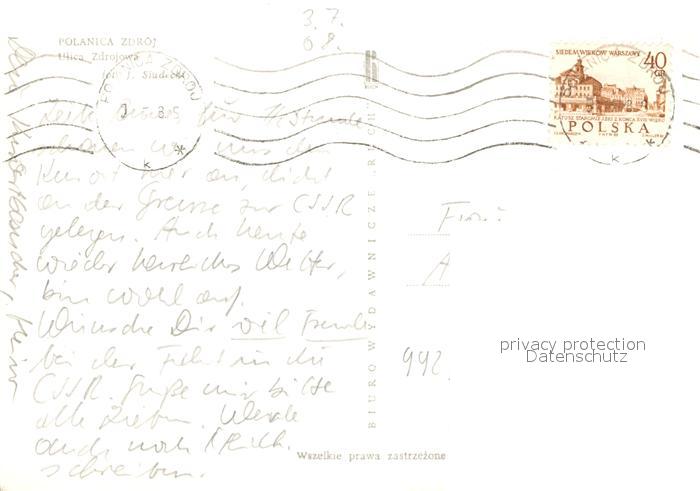 3.7.
68.
POLANICA ZDRÓJ
Ulica Zdrojowa
fot. J. Siudecki
SIEDEM WIEKÓW WARSZAWY
40
GR
POLSKA
für 4 Stunden
wir uns den
Kurort hier an, dicht
an der Grenze zur CSSR
gelegen. Auch heute
wieder herrliches Wetter,
bin wohl auf.
Wünsche Dir viel Freude
bei der Fahrt in die
CSSR. Grüße mir bitte
alle Lieben. Werde
auch noch
schreiben.
BIURO WYDAWNICZE „RUCH"
Frau
A
992.
privacy protection
Datenschutz
Wszelkie prawa zastrzeżone